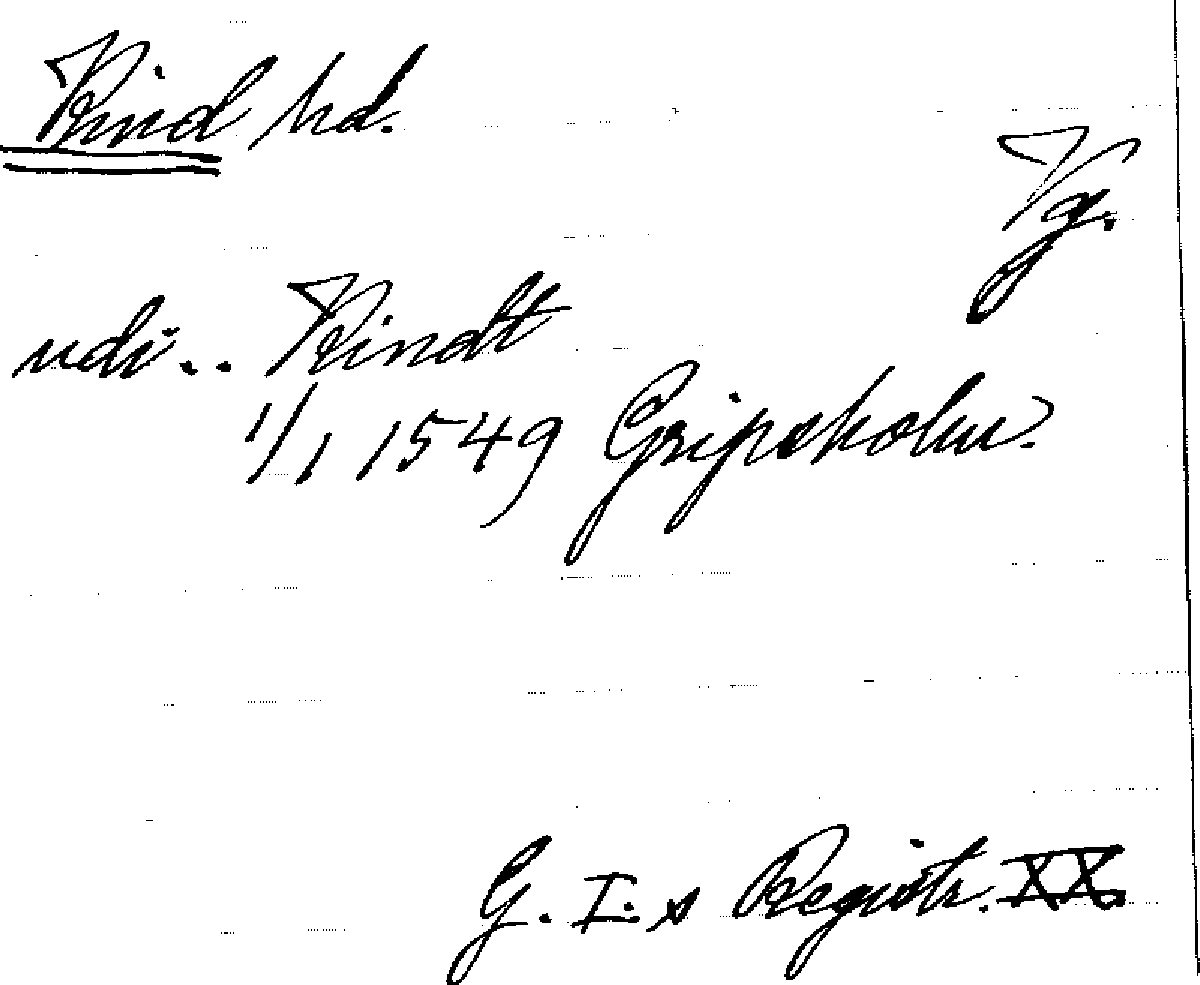 Kind hd.
Vg.
udi.. Kindt
1/1 1549 Gripsholm.
G. I.s Registr. XX.